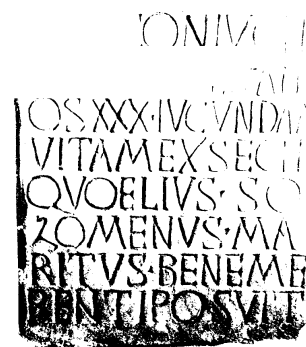 ONIV
OS XXX·IVCVNDA
VITAM EXSEC
QVO ELIVS· SO
ZOMENVS·MA
RITVS·BENEME
RENTI POSVIT